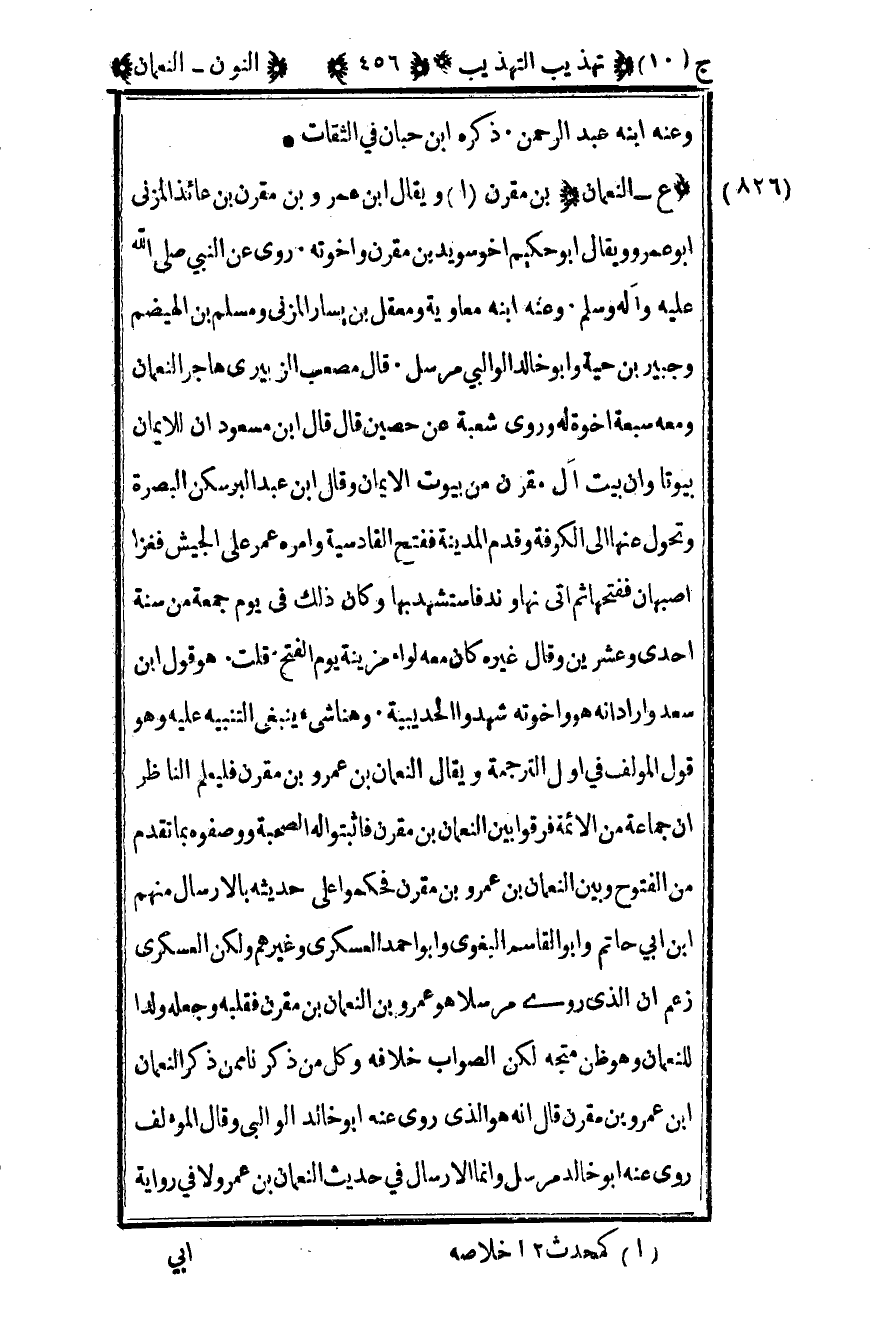 ج (١٠) ﴿ تهذيب التهذيب ﴾ ﴿ ٤٥٦ ﴾ ﴿ النون ـ النعمان ﴾
وعنه ابنه عبد الرحمن ٠ ذكره ابن حبان في الثقات ٠
(٨٢٦) ﴿ ع ـ النعمان ﴾ بن مقرن (١) ويقال ابن عمرو بن مقرن بن عائذ المزنى
ابو عمرو ويقال ابو حكيم اخو سويد بن مقرن واخوته ٠ روى عن النبي صلى الله
عليه وآله وسلم ٠ وعنه ابنه معاوية ومعقل بن يسار المزنى ومسلم بن الهيضم
وجبير بن حية وابو خالد الوالبي مرسل ٠ قال مصعب الزبيرى هاجر النعمان
ومعه سبعة اخوة له وروى شعبة عن حصين قال قال ابن مسعود ان للايمان
بيوتا وان بيت آل مقرن من بيوت الايمان وقال ابن عبد البر سكن البصرة
وتحول عنها الى الكوفة وقدم المدينة ففتح القادسية وامره عمر على الجيش فغزا
اصبهان ففتحها ثم اتى نهاوند فاستشهد بها وكان ذلك فى يوم جمعة من سنة
احدى وعشرين وقال غيره كان معه لواء مزينة يوم الفتح ٠ قلت ٠ هو قول ابن
سعد واراد انه هو واخوته شهدوا الحديبية ٠ وهنا شىء ينبغى التنبيه عليه وهو
قول المولف في اول الترجمة ويقال النعمان بن عمرو بن مقرن فليعلم الناظر
ان جماعة من الائمة فرقوا بين النعمان بن مقرن فاثبتوا له الصحبة ووصفوه بما تقدم
من الفتوح وبين النعمان بن عمرو بن مقرن فحكموا على حديثه بالارسال منهم
ابن ابي حاتم وابو القاسم البغوى وابو احمد العسكرى وغيرهم ولكن العسكرى
زعم ان الذى روے مرسلا هو عمرو بن النعمان بن مقرن فقلبه وجعله ولدا
للنعمان وهو ظن متجه لكن الصواب خلافه وكل من ذكرنا ممن ذكر النعمان
ابن عمرو بن مقرن قال انه هو الذى روى عنه ابو خالد الوالبى وقال المؤلف
روى عنه ابو خالد مرسل وانما الارسال في حديث النعمان بن عمرو لا في رواية
(١) كمحدث ١٢ خلاصه
ابي